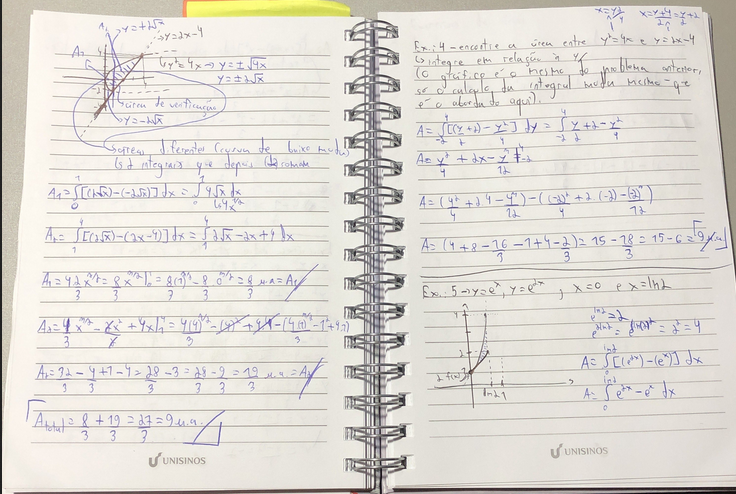 A₁ y=+2√x
y=2x-4
A₂ 4
y²=4x → y=±√4x
y=±2√x
área de verificação
y=-2√x
áreas diferentes (curvas de baixo muda)
2 integrais que depois se somam
A₁=∫₀¹[(2√x)-(-2√x)] dx = ∫₀¹ 4√x dx
4x^1/2
A₂=∫₁⁴[(2√x)-(2x-4)] dx = ∫₁⁴ 2√x-2x+4 dx
A₂=32/3-4/3+1-4=28/3-3=28/3-9/3=19/3 u.a.=A₂
Atotal=8/3+19/3=27/3=9u.a.
UNISINOS
x=y²/4 x=y+4/2=y/2+2
Ex.: 4 - encontre a área entre y²=4x e y=2x-4
integre em relação à y
(o gráfico é o mesmo do problema anterior,
só o cálculo da integral muda mesmo - que
é o abordado aqui).
A=∫₋₂⁴[(y/2+2)-y²/4] dy=∫₋₂⁴ y/2+2-y²/4
A=y²/4+2x-y³/12 |⁴₋₂
A=(4²/4+2·4-4³/12)-((-2)²/4+2·(-2)-(-2)³/12)
A=(4+8-16/3-1+4-2/3)=15-18/3=15-6=9u.a.
Ex.: 5 → y=eˣ, y=e²ˣ, x=0 e x=ln2
4
2
ln2 1
e^ln2=2
e^2ln2=e^ln(2)²=2²=4
A=∫₀^ln2[(e²ˣ)-(eˣ)] dx
A=∫₀^ln2 e²ˣ-eˣ dx
UNISINOS